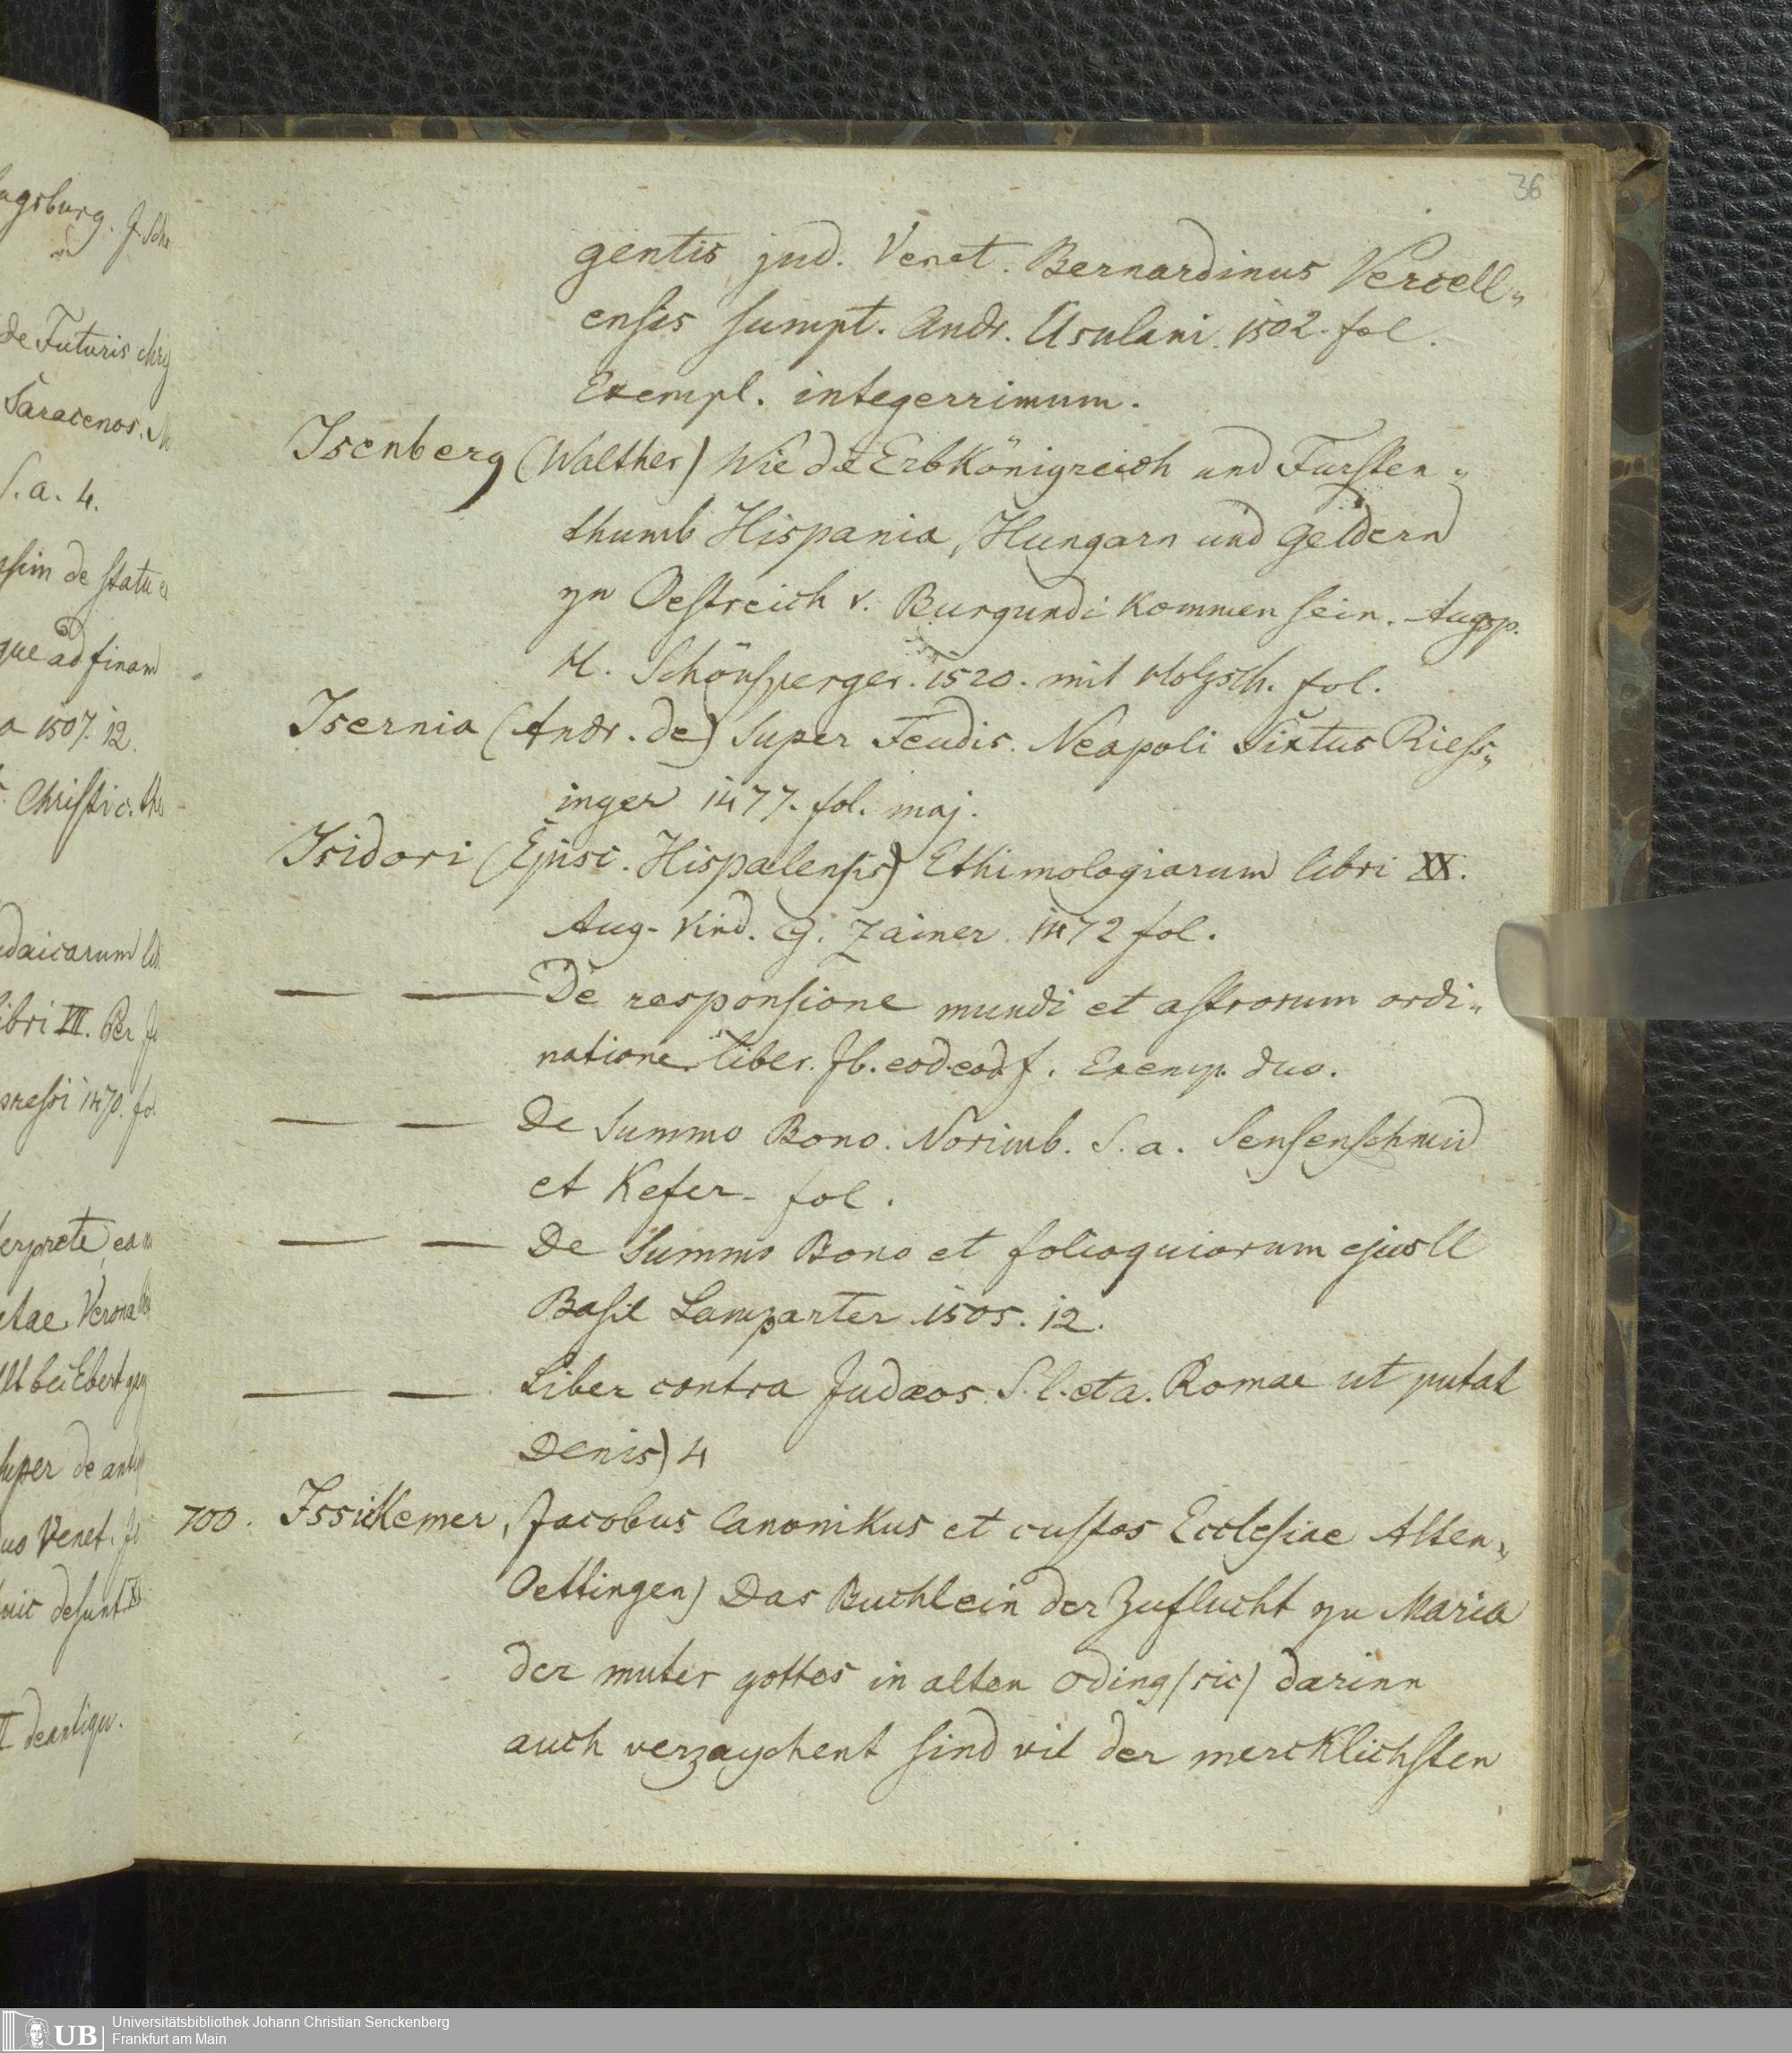 36
gentis jud. Venet. Bernardinus Vercell„
ensis sumpt. Andr. Asulani 1502. fol.
Exempl. integerrimum.
Isenberg (Walther) Wie de ErbKönigreich und Fursten„
thumb Hispania, Hungarn und Geldern
zu Oestreich v. Burgundi Kommen sein. Augsp.
H. Schönsperger. 1520. mit Holzsch. fol.
Isernia (Andr. de) Super Feudis. Neapoli Sixtus Riess„
inger 1477. fol. maj.
Isidori (Episc. Hispalensis) Ethimologiarum libri XX.
Aug. Vind. G. Zainer 1472 fol.
— — De responsione mundi et astrorum ordi„
natione liber. Ib. eod. eod. f. Exemp. duo.
— — De Summo Bono. Norimb. S. a. Sensenschmid
et Kefer. fol.
— — De Summo Bono et solioquiorum ejus II
Basil Lamparter 1505. 12.
— — Liber contra Judaeos. S. l. et a. Romae ut putat
Denis) 4
700. Issickemer, Jacobus Canonikus et custos Ecclesiae Alten„
Oettingen) Das Buchlein der Zuflucht zu Maria
der muter gottes in alten Oding (sic) darinn
auch verzaychent sind vil der mercklichsten
ugsburg. J. Sch
de Futuris chri
Saracenos. M
S. a. 4.
de statu
que ad finam
a 1507. 12.
Christi c. th
daicarum li
ibri VII. Per J
pressi 1470. fo
terprete, ea
etae Verona
lt bei Ebert
super de anti
us Venet. J
huic desunt
deantiqu.
UB Universitätsbibliothek Johann Christian Senckenberg
Frankfurt am Main